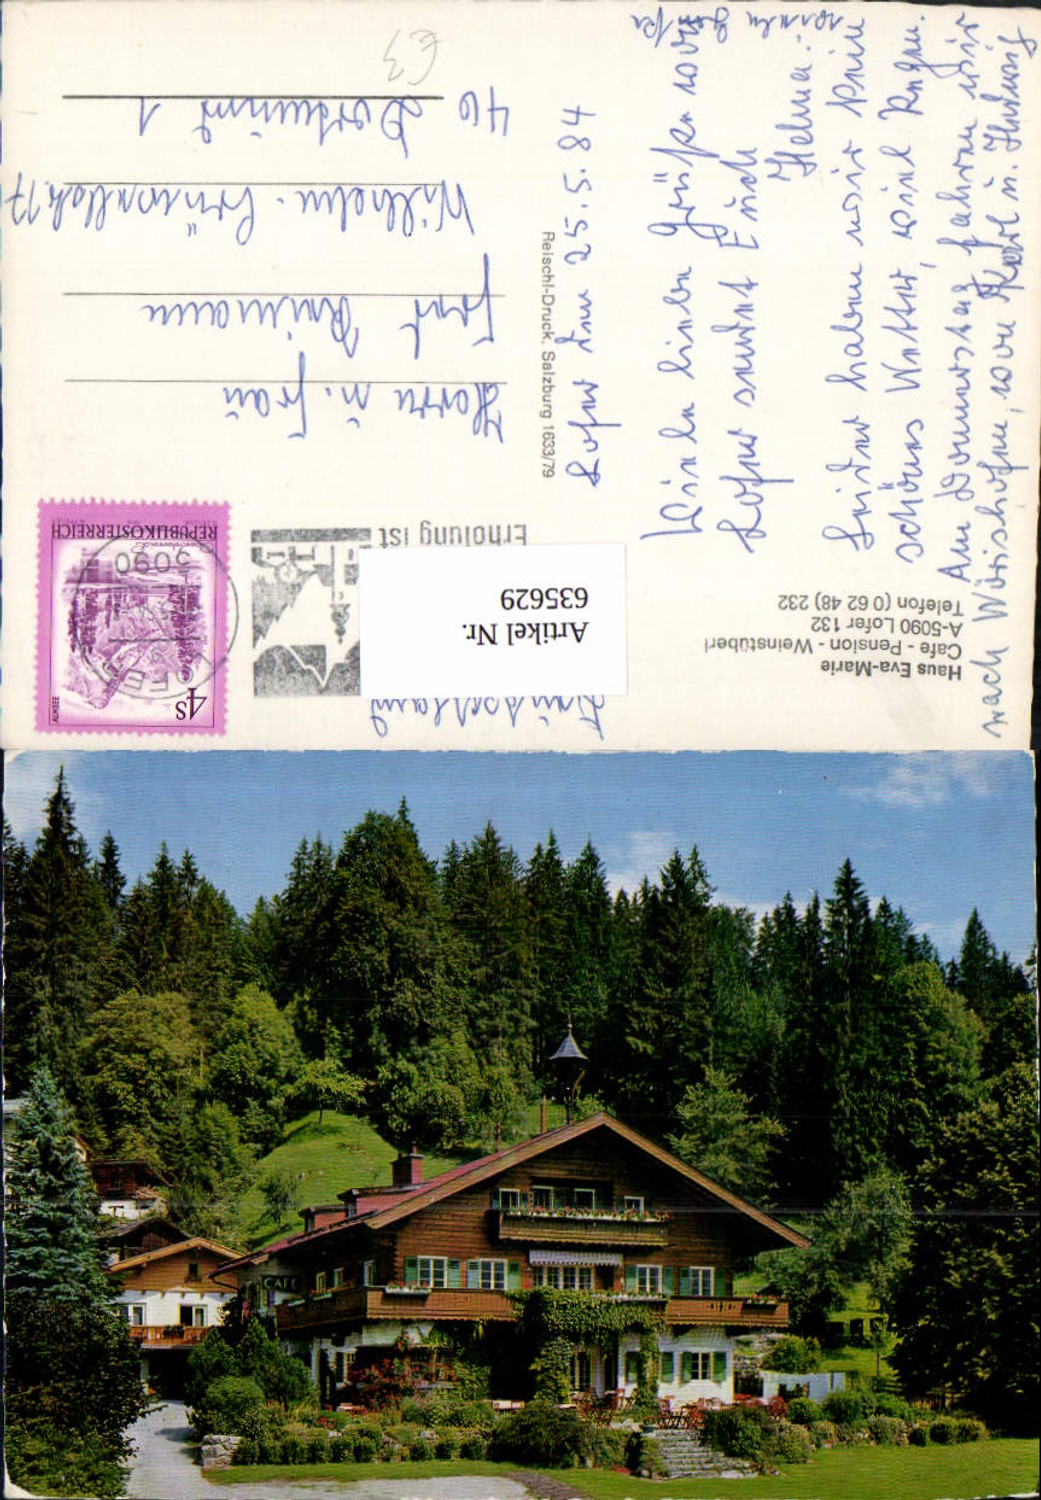 Haus Eva-Marie
Cafe - Pension - Weinstüberl
A-5090 Lofer 132
Telefon (0 62 48) 232
Lofer den 25.5.84
Grüße
Lofer sendet Euch
Helma.
Leider haben wir kein
schönes Wetter, viel Regen.
Am Donnerstag fahren wir
nach Wörishofen, von Karl u.
Reischl-Druck, Salzburg 1633/79
Erholung ist
Artikel Nr.
635629
REPUBLIK ÖSTERREICH
4S
ALMSEE
5090
LOFER
Herrn u. Frau
Wilhelm-
46 Dortmund 1
Deutschland
€3
CAFE